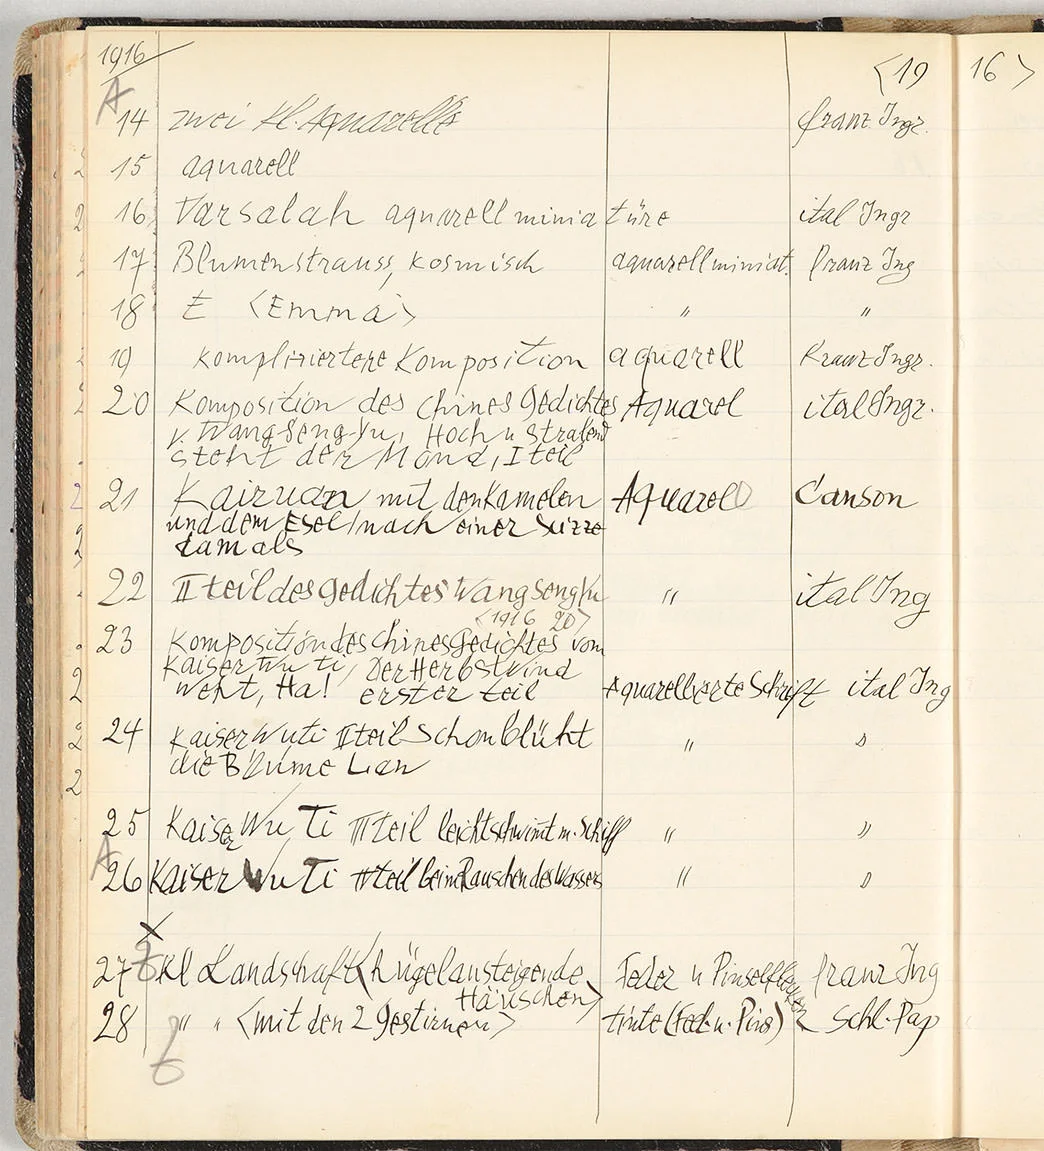 1916
<19 16>
A
14 zwei kl. Aquarelle franz Ingr.
15 aquarell
16 Varsalah aquarell miniatüre ital Ingr
17 Blumenstrauss, kosmisch aquarellminiat. franz Ing
18 E <Emma> " "
19 kompliziertere Komposition aquarell franz Ingr.
20 Komposition des chines Gedichtes Aquarel ital Ingr.
v. Wang Seng Yu, Hoch u stralend
steht der Mond, I teil
21 Kairuan mit den Kamelen Aquarell Canson
und dem Esel/nach einer Skizze
damals
22 II teil des gedichtes Wang Seng Yu " ital Ing
<1916 20>
23 Komposition des chines Gedichtes vom
Kaiser Wu ti, Der Herbstwind
weht, Ha! erster teil Aquarellierte Schrift ital Ing
24 Kaiser Wu ti II teil Schon blüht " "
die Blume Lan
25 Kaiser Wu Ti III teil leicht schwimt m. Schiff " "
A
26 Kaiser Wu Ti teil beim Rauschen des Wassers " "
27 Kl Landschaft <hügelansteigende Feder u Pinselflecken franz Ing
Häuschen>
28 " " <mit den 2 Gestirnen> tinte (Fed. u. Pins) Schl. Pap